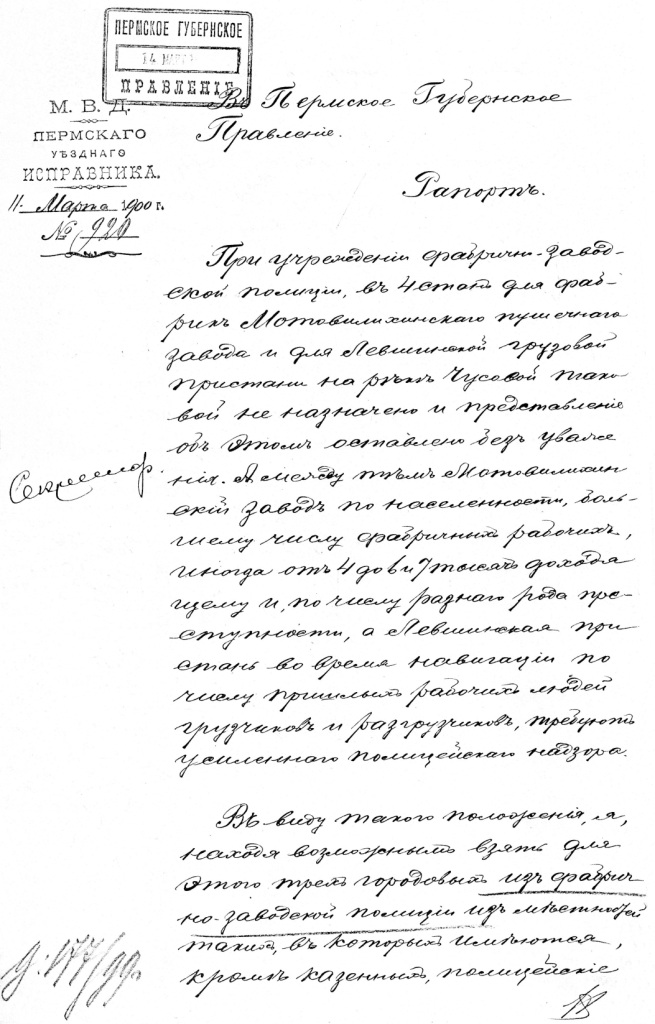 ПЕРМСКОЕ ГУБЕРНСКОЕ
14 МАР
ПРАВЛЕНІЕ
М. В. Д.
ПЕРМСКАГО
УѢЗДНАГО
ИСПРАВНИКА.
11. Марта 1900 г.
№ 920
Въ Пермское Губернское
Правленіе.
Рапортъ.
При учрежденіи фабрично-завод-
ской полиціи, въ 4 станѣ для фаб-
рикъ Мотовилихинскаго пушечнаго
завода и для Левшинской грузовой
пристани на рѣкѣ Чусовой тако
вой не назначено и представленіе
объ этомъ оставлено безъ уваже
нія. А между тѣмъ Мотовилихин
скій заводъ по населенности, боль-
шему числу фабричныхъ рабочихъ,
иногда отъ 4 до 6 и 7 тысячъ доходя
щему и, по числу разнаго рода пре-
ступности, а Левшинская при
стань во время навигаціи по
числу пришлыхъ рабочихъ людей
грузчиковъ и разгрузчиковъ, требуютъ
усиленнаго полицейскаго надзора.
Въ виду такого положенія, я,
находя возможнымъ взять для
этого трехъ городовыхъ изъ фабрич
но-заводской полиціи изъ мѣстностей
такихъ, въ которыхъ имѣются,
кромѣ казенныхъ, полицейскіе
д. 177/99.